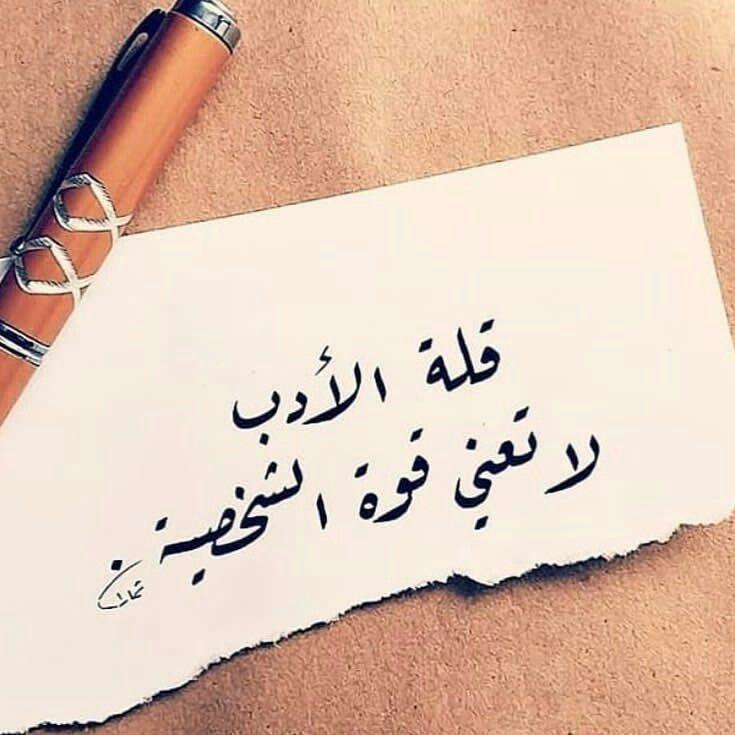 قلة الأدب
لا تعني قوة الشخصية.